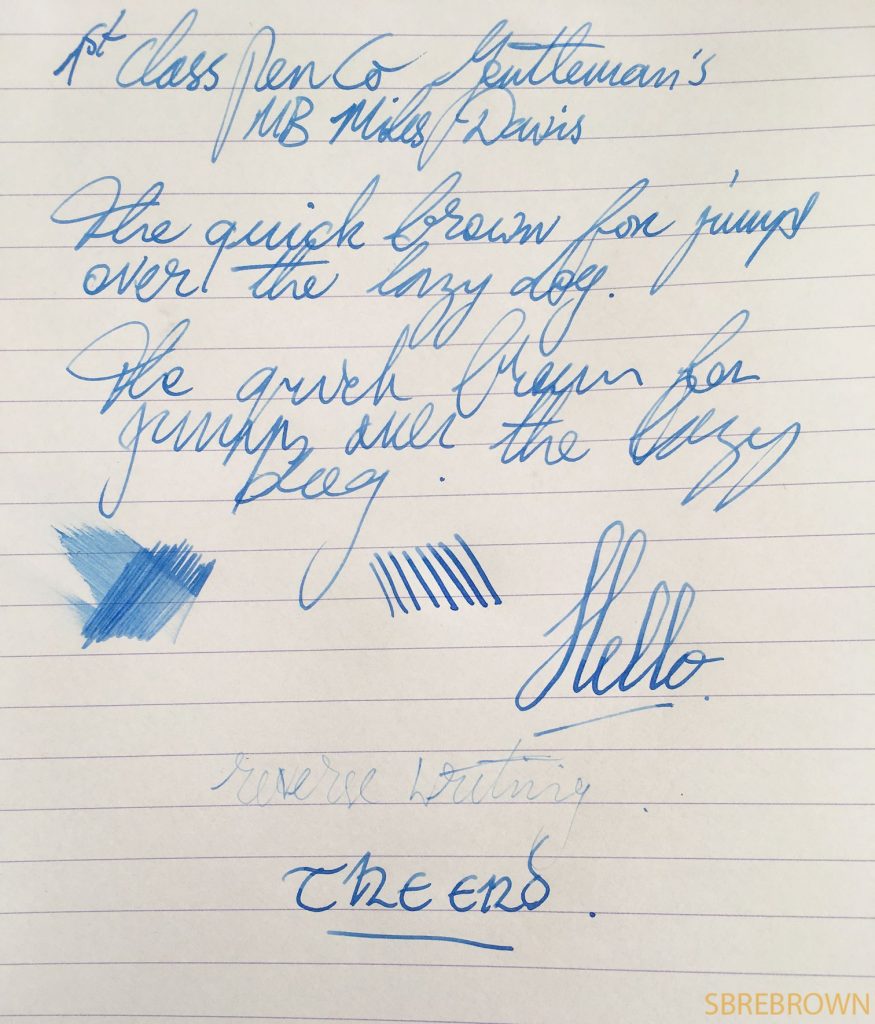 1st Class Pen Co Gentleman's
MB Miles Davis
The quick brown fox jumps
over the lazy dog.
The quick brown fox
jumps over the lazy
dog.
Hello.
reverse writing.
THE END.
SBREBROWN